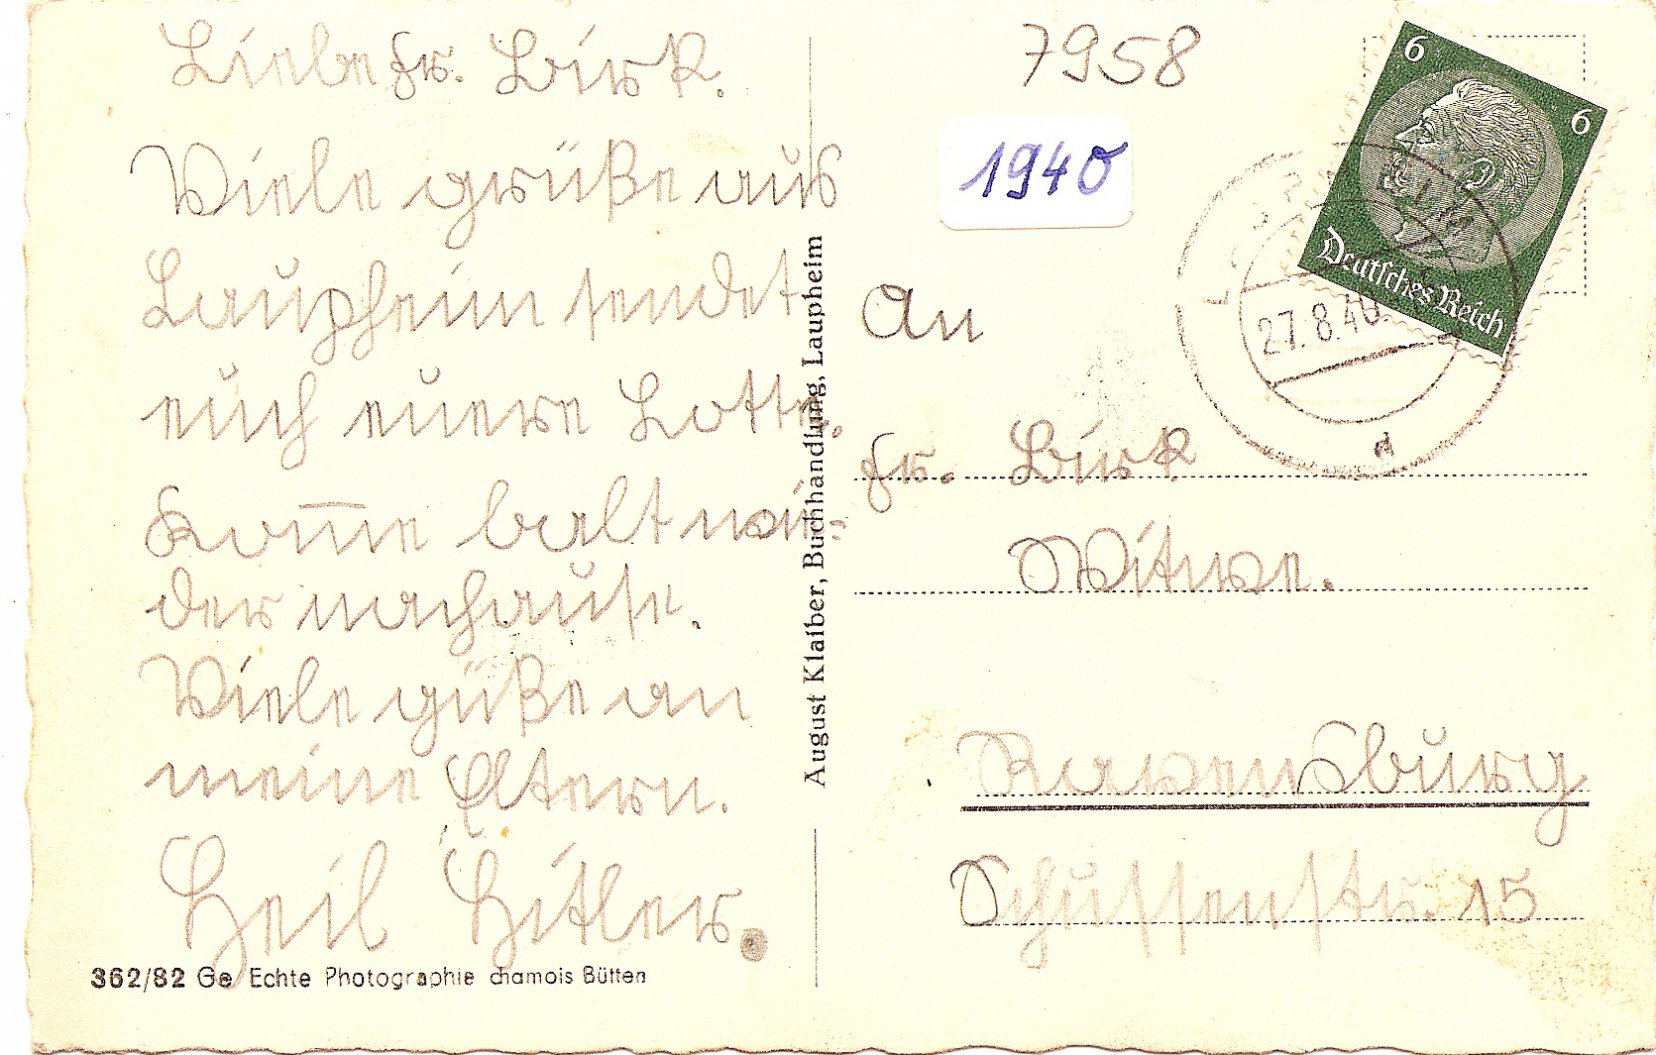 Liebe Fr. Birk.
Viele grüße aus
Laupheim sendet
euch euere Lotte.
Kom̅e balt wie-
der nachause.
Viele güße an
meine Eltern.
Heil Hitler.
362/82 Ge Echte Photographie chamois Bütten
August Klaiber, Buchhandlung, Laupheim
7958
1940
6
6
Deutsches Reich
27.8.40
d
An
Fr. Birk
Witwe.
Ravensburg
Schussenstr. 15